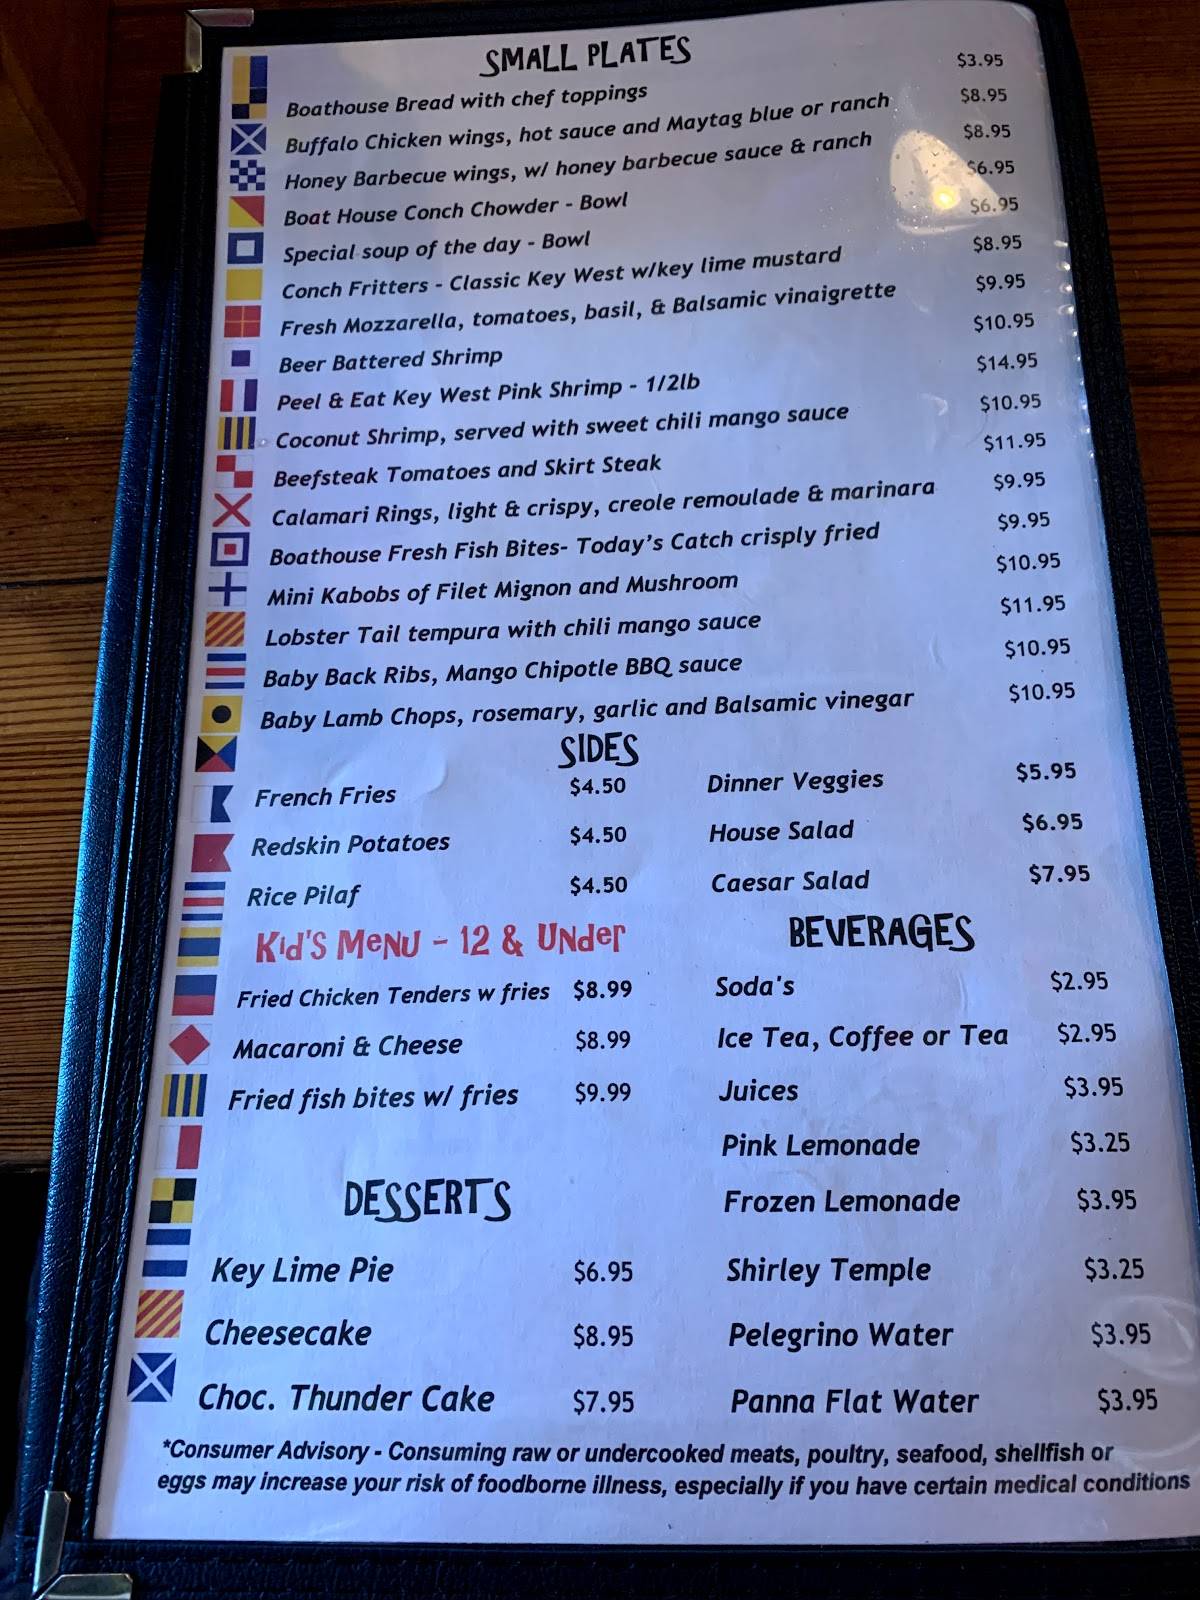 SMALL PLATES
Boathouse Bread with chef toppings $3.95
Buffalo Chicken wings, hot sauce and Maytag blue or ranch $8.95
Honey Barbecue wings, w/ honey barbecue sauce & ranch $8.95
Boat House Conch Chowder - Bowl $6.95
Special soup of the day - Bowl $6.95
Conch Fritters - Classic Key West w/key lime mustard $8.95
Fresh Mozzarella, tomatoes, basil, & Balsamic vinaigrette $9.95
Beer Battered Shrimp $10.95
Peel & Eat Key West Pink Shrimp - 1/2lb $14.95
Coconut Shrimp, served with sweet chili mango sauce $10.95
Beefsteak Tomatoes and Skirt Steak $11.95
Calamari Rings, light & crispy, creole remoulade & marinara $9.95
Boathouse Fresh Fish Bites- Today's Catch crisply fried $9.95
Mini Kabobs of Filet Mignon and Mushroom $10.95
Lobster Tail tempura with chili mango sauce $11.95
Baby Back Ribs, Mango Chipotle BBQ sauce $10.95
Baby Lamb Chops, rosemary, garlic and Balsamic vinegar $10.95
SIDES
French Fries $4.50 Dinner Veggies $5.95
Redskin Potatoes $4.50 House Salad $6.95
Rice Pilaf $4.50 Caesar Salad $7.95
Kid's Menu - 12 & Under
Fried Chicken Tenders w fries $8.99
Macaroni & Cheese $8.99
Fried fish bites w/ fries $9.99
DESSERTS
Key Lime Pie $6.95
Cheesecake $8.95
Choc. Thunder Cake $7.95
BEVERAGES
Soda's $2.95
Ice Tea, Coffee or Tea $2.95
Juices $3.95
Pink Lemonade $3.25
Frozen Lemonade $3.95
Shirley Temple $3.25
Pelegrino Water $3.95
Panna Flat Water $3.95
*Consumer Advisory - Consuming raw or undercooked meats, poultry, seafood, shellfish or
eggs may increase your risk of foodborne illness, especially if you have certain medical conditions